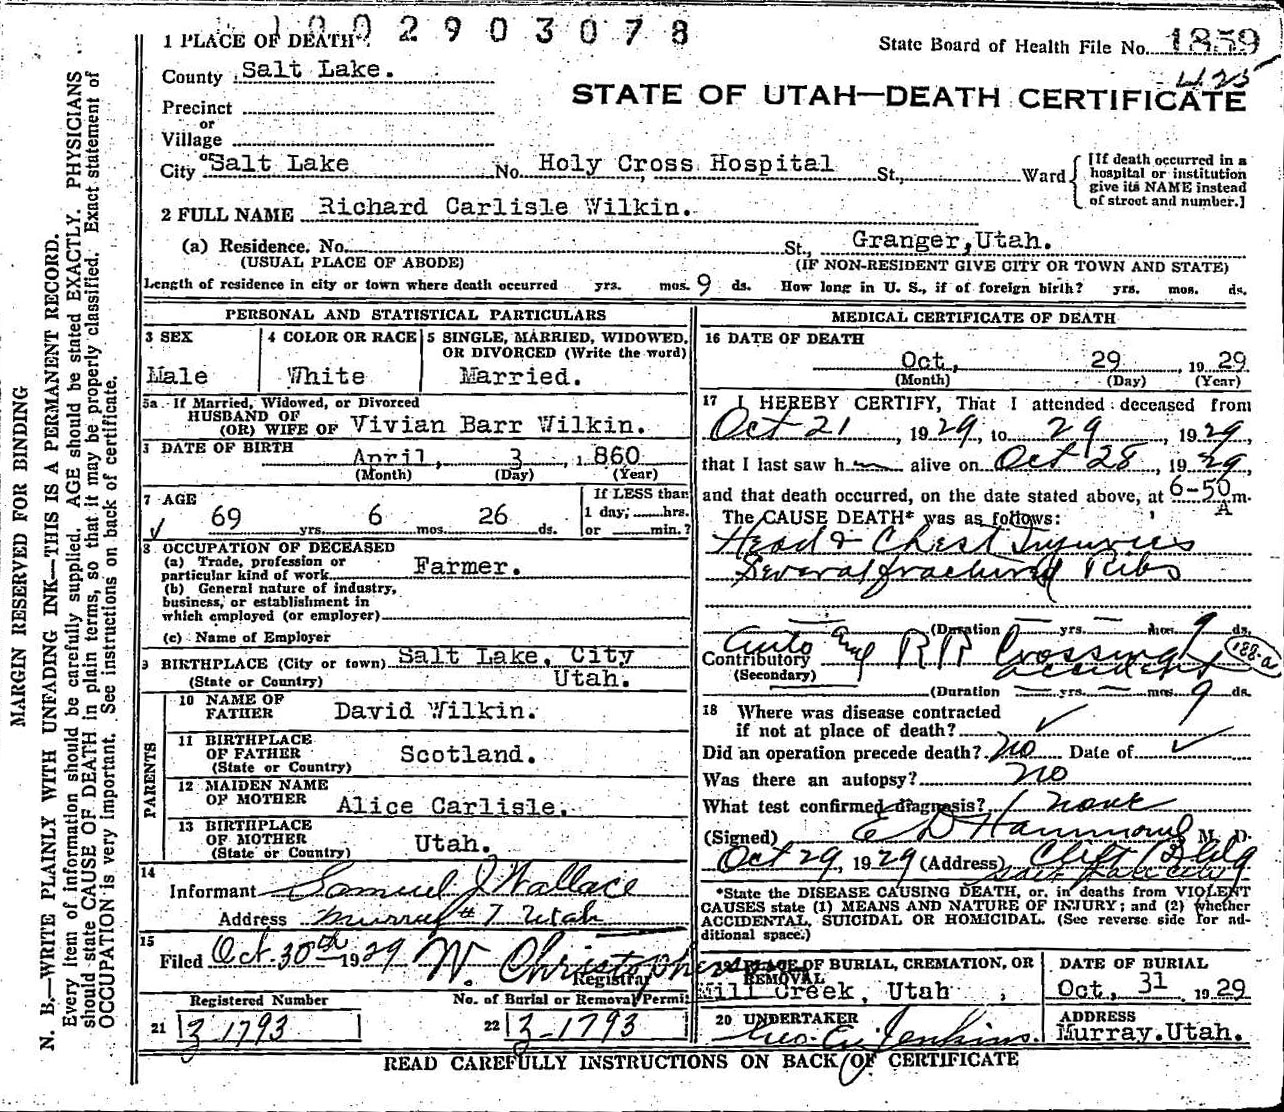 1002903078
1 PLACE OF DEATH
State Board of Health File No. 1859
County Salt Lake.
STATE OF UTAH—DEATH CERTIFICATE
Precinct
or
Village
or
City Salt Lake No. Holy Cross Hospital St., Ward
[If death occurred in a
hospital or institution
give its NAME instead
of street and number.]
2 FULL NAME Richard Carlisle Wilkin.
(a) Residence. No. St., Granger, Utah.
(USUAL PLACE OF ABODE) (IF NON-RESIDENT GIVE CITY OR TOWN AND STATE)
Length of residence in city or town where death occurred yrs. mos. 9 ds. How long in U. S., if of foreign birth? yrs. mos. ds.
PERSONAL AND STATISTICAL PARTICULARS
3 SEX
Male
4 COLOR OR RACE
White
5 SINGLE, MARRIED, WIDOWED,
OR DIVORCED (Write the word)
Married.
5a If Married, Widowed, or Divorced
HUSBAND OF
(OR) WIFE OF Vivian Barr Wilkin.
DATE OF BIRTH
April, 3, 1860
(Month) (Day) (Year)
7 AGE
69 yrs. 6 mos. 26 ds.
If LESS than
1 day, hrs.
or min.?
8 OCCUPATION OF DECEASED
(a) Trade, profession or
particular kind of work Farmer.
(b) General nature of industry,
business, or establishment in
which employed (or employer)
(c) Name of Employer
9 BIRTHPLACE (City or town) Salt Lake, City
(State or Country) Utah.
PARENTS
10 NAME OF
FATHER David Wilkin.
11 BIRTHPLACE
OF FATHER Scotland.
(State or Country)
12 MAIDEN NAME
OF MOTHER Alice Carlisle.
13 BIRTHPLACE
OF MOTHER Utah.
(State or Country)
14
Informant Samuel J Wallace
Address Murray #7 Utah
15
Filed Oct. 30th 1929 W. Christopherson
Registrar
Registered Number
21 3-1793
No. of Burial or Removal Permit
22 3-1793
MEDICAL CERTIFICATE OF DEATH
16 DATE OF DEATH
Oct, 29, 1929
(Month) (Day) (Year)
17 I HEREBY CERTIFY, That I attended deceased from
Oct 21, 1929, to 29, 1929,
that I last saw h alive on Oct 28, 1929,
and that death occurred, on the date stated above, at 6-50 A m.
The CAUSE DEATH* was as follows:
Head & Chest Injuries
Several fractured Ribs
(Duration yrs. mos. 9 ds.
Contributory Auto and RR Crossing accident 188-a
(Secondary)
(Duration yrs. mos. 9 ds.
18 Where was disease contracted
if not at place of death?
Did an operation precede death? No Date of
Was there an autopsy? no
What test confirmed diagnosis? none
(Signed) E D Hammond M. D.
Oct 29, 1929 (Address) Clift Bldg
Salt Lake City
*State the DISEASE CAUSING DEATH, or, in deaths from VIOLENT
CAUSES state (1) MEANS AND NATURE OF INJURY; and (2) whether
ACCIDENTAL, SUICIDAL OR HOMICIDAL. (See reverse side for ad-
ditional space.)
PLACE OF BURIAL, CREMATION, OR
REMOVAL
Mill Creek, Utah,
DATE OF BURIAL
Oct, 31, 1929
20 UNDERTAKER
Geo. E. Jenkins.
ADDRESS
Murray. Utah.
READ CAREFULLY INSTRUCTIONS ON BACK OF CERTIFICATE
MARGIN RESERVED FOR BINDING
N. B.—WRITE PLAINLY WITH UNFADING INK—THIS IS A PERMANENT RECORD.
Every item of information should be carefully supplied. AGE should be stated EXACTLY. PHYSICIANS
should state CAUSE OF DEATH in plain terms, so that it may be properly classified. Exact statement of
OCCUPATION is very important. See instructions on back of certificate.